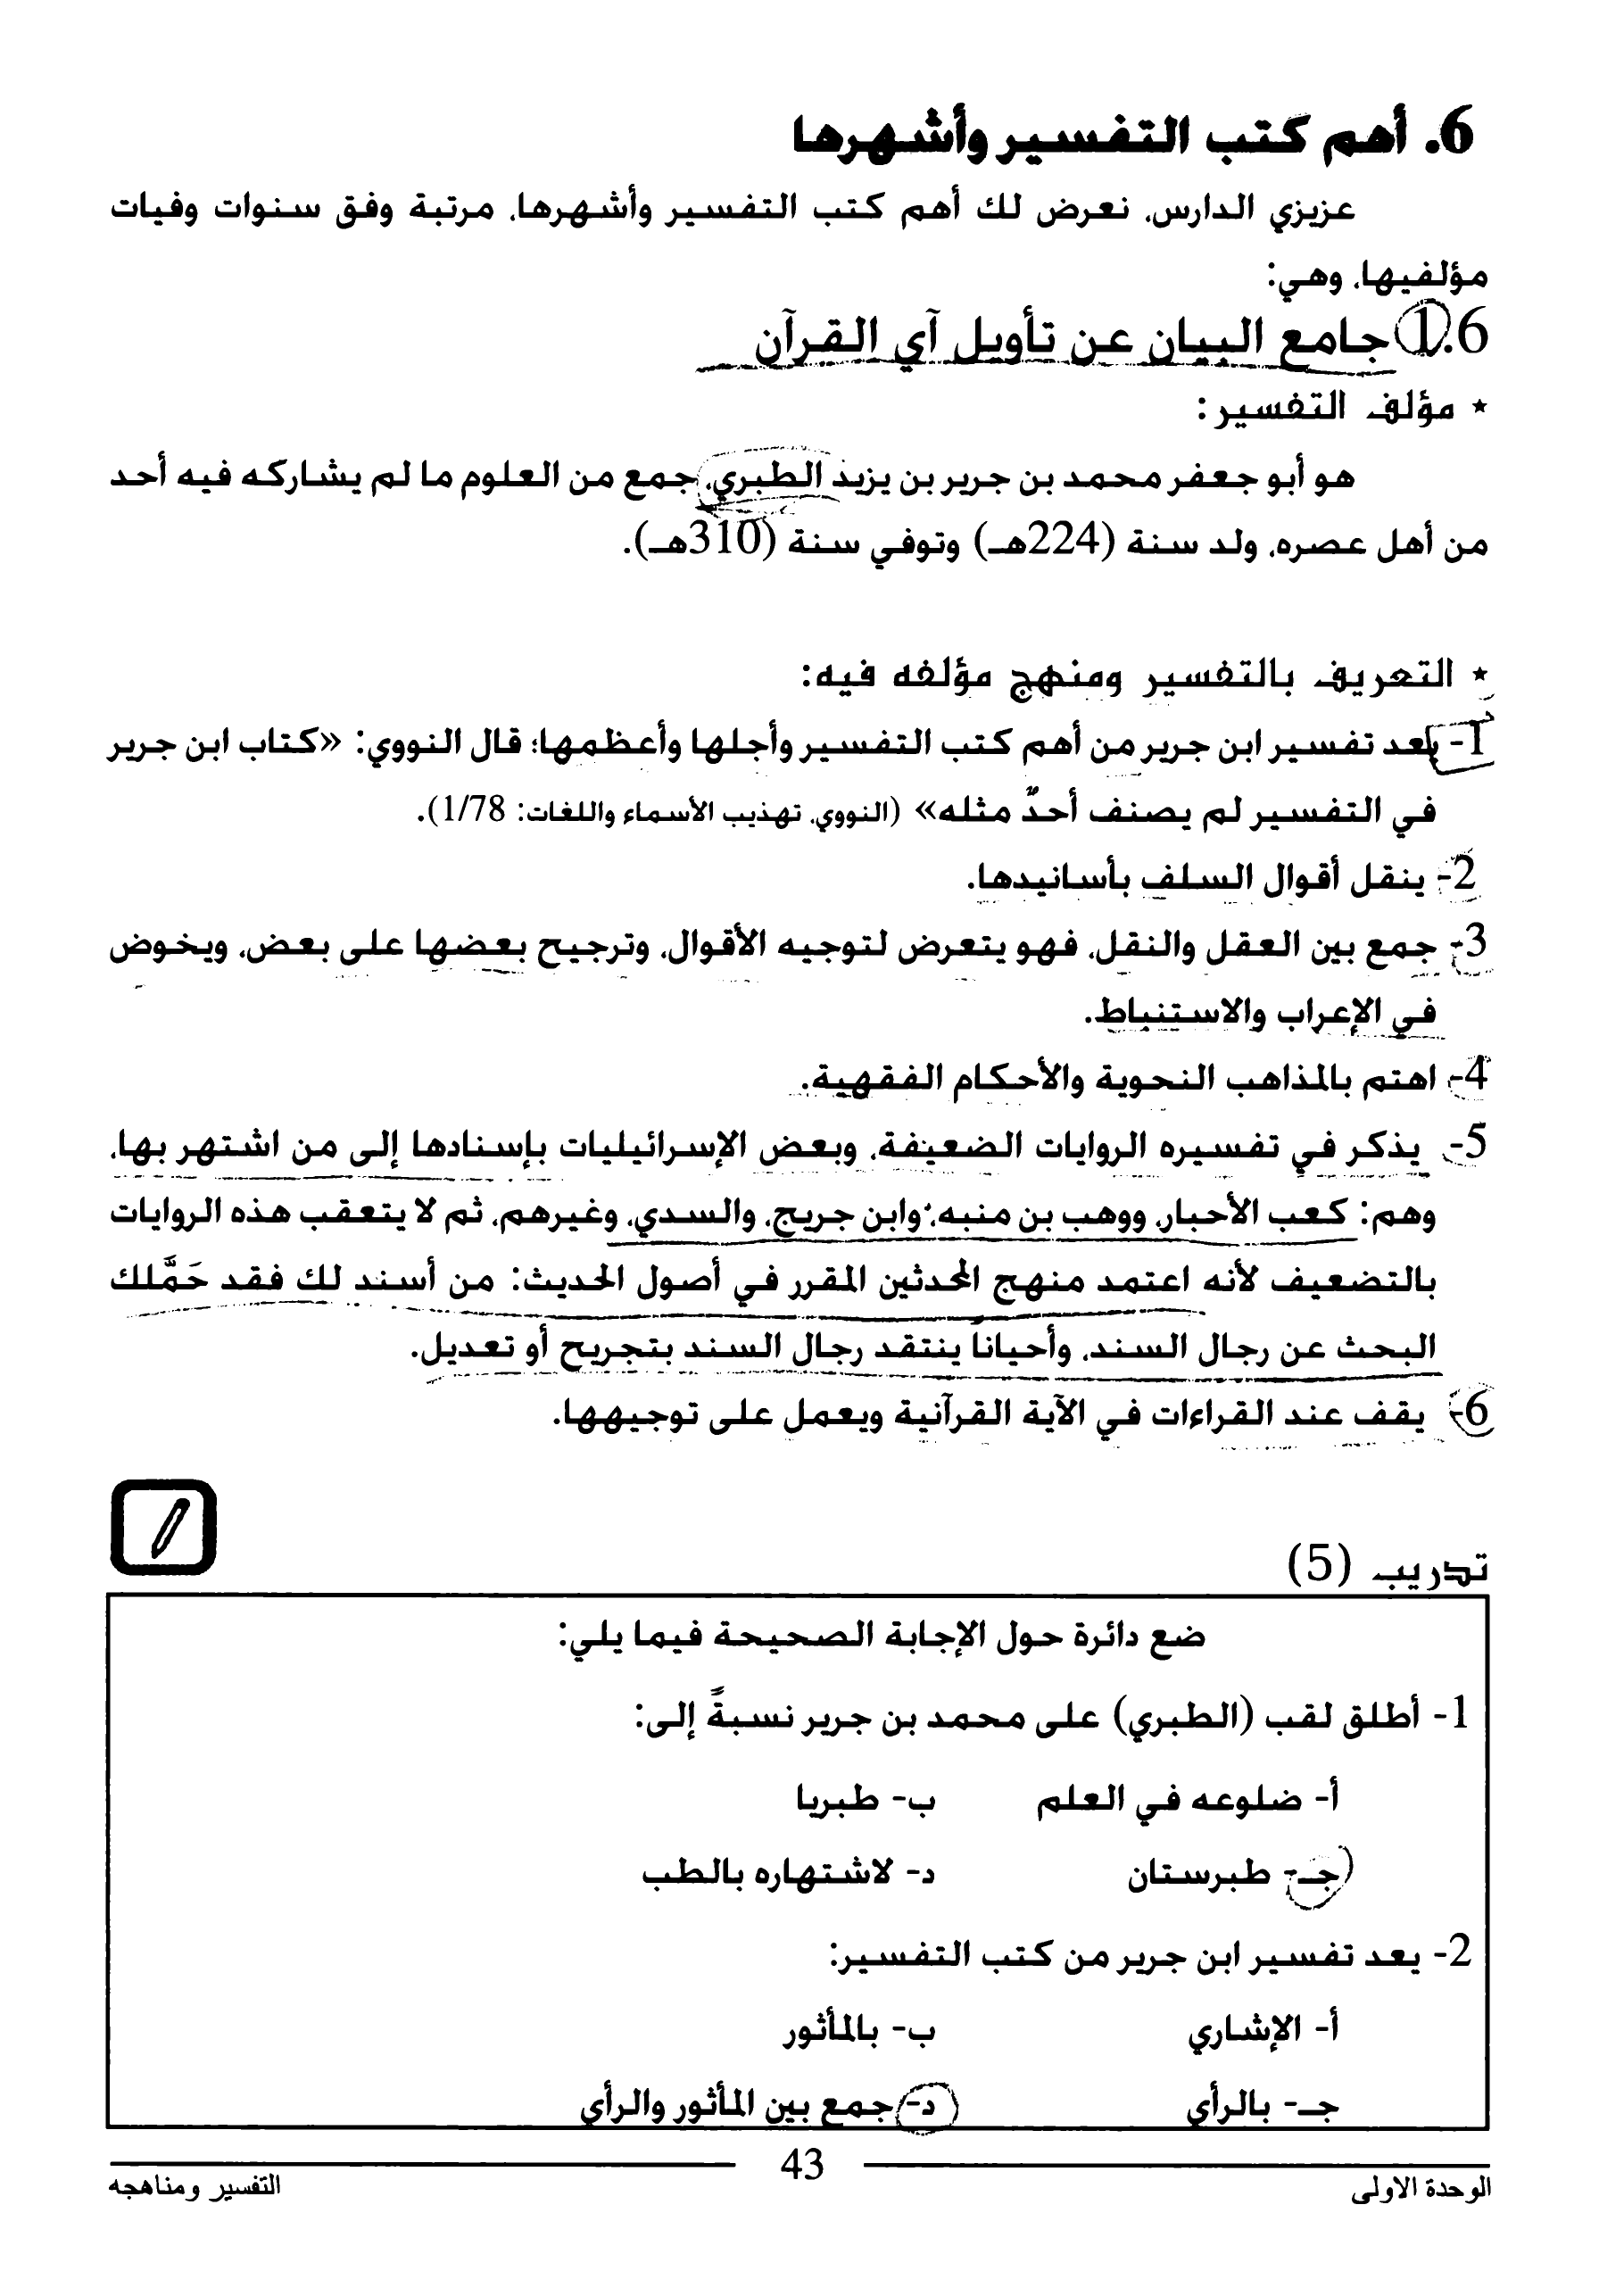 6. أهم كتب التفسير وأشهرها
عزيزي الدارس، نعرض لك أهم كتب التفسير وأشهرها، مرتبة وفق سنوات وفيات
مؤلفيها، وهي:
1.6 جامع البيان عن تأويل آي القرآن
* مؤلف التفسير:
هو أبو جعفر محمد بن جرير بن يزيد الطبري، جمع من العلوم ما لم يشاركه فيه أحد
من أهل عصره، ولد سنة (224هـ) وتوفي سنة (310هـ).
* التعريف بالتفسير ومنهج مؤلفه فيه:
1- يعد تفسير ابن جرير من أهم كتب التفسير وأجلها وأعظمها؛ قال النووي: «كتاب ابن جرير
في التفسير لم يصنف أحدٌ مثله» (النووي، تهذيب الأسماء واللغات: 1/78).
2- ينقل أقوال السلف بأسانيدها.
3- جمع بين العقل والنقل، فهو يتعرض لتوجيه الأقوال، وترجيح بعضها على بعض، ويخوض
في الإعراب والاستنباط.
4- اهتم بالمذاهب النحوية والأحكام الفقهية.
5- يذكر في تفسيره الروايات الضعيفة، وبعض الإسرائيليات بإسنادها إلى من اشتهر بها،
وهم: كعب الأحبار، ووهب بن منبه، وابن جريج، والسدي، وغيرهم، ثم لا يتعقب هذه الروايات
بالتضعيف لأنه اعتمد منهج المحدثين المقرر في أصول الحديث: من أسند لك فقد حَمَّلك
البحث عن رجال السند، وأحياناً ينتقد رجال السند بتجريح أو تعديل.
6- يقف عند القراءات في الآية القرآنية ويعمل على توجيهها.
تدريب (5)
ضع دائرة حول الإجابة الصحيحة فيما يلي:
1- أطلق لقب (الطبري) على محمد بن جرير نسبةً إلى:
أ- ضلوعه في العلم ب- طبريا
جـ- طبرستان د- لاشتهاره بالطب
2- يعد تفسير ابن جرير من كتب التفسير:
أ- الإشاري ب- بالمأثور
جـ- بالرأي د- جمع بين المأثور والرأي
43
الوحدة الاولى التفسير ومناهجه